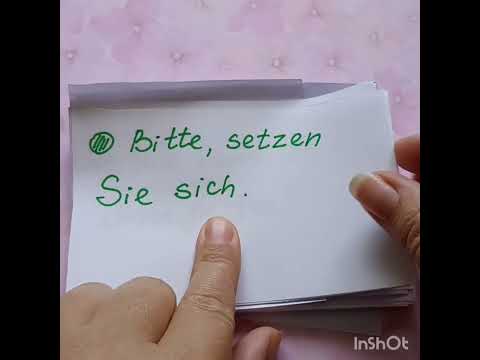 Bitte, setzen
Sie sich.
InShOt